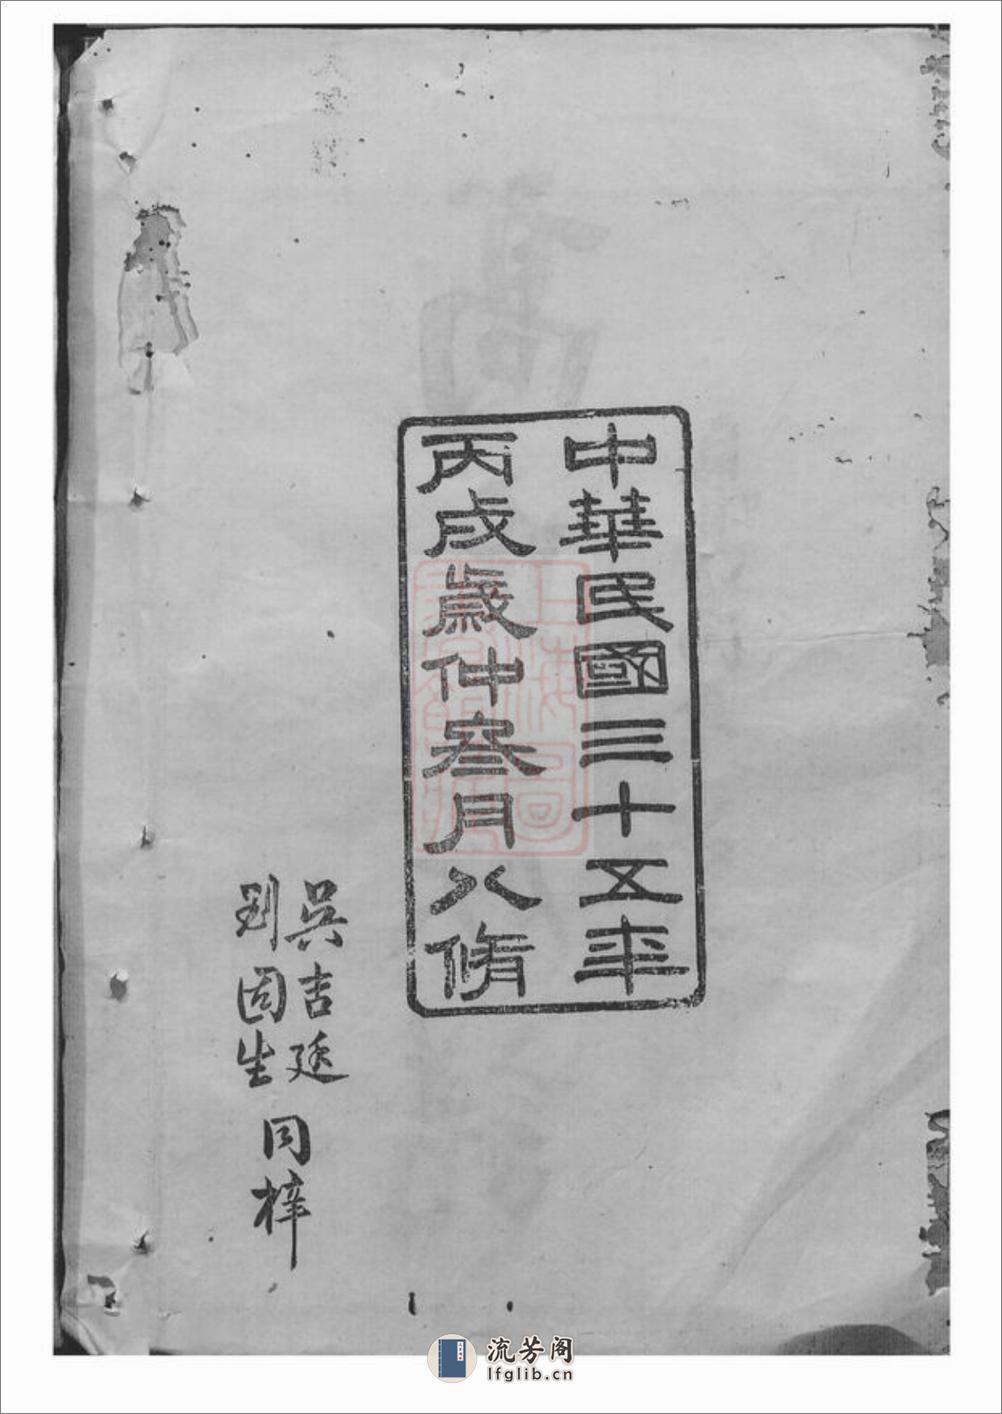 中華民國三十五年
丙戌歲仲叁月八脩
吳吉廷
劉固生
同梓
上海圖
流芳阁
lfglib.cn